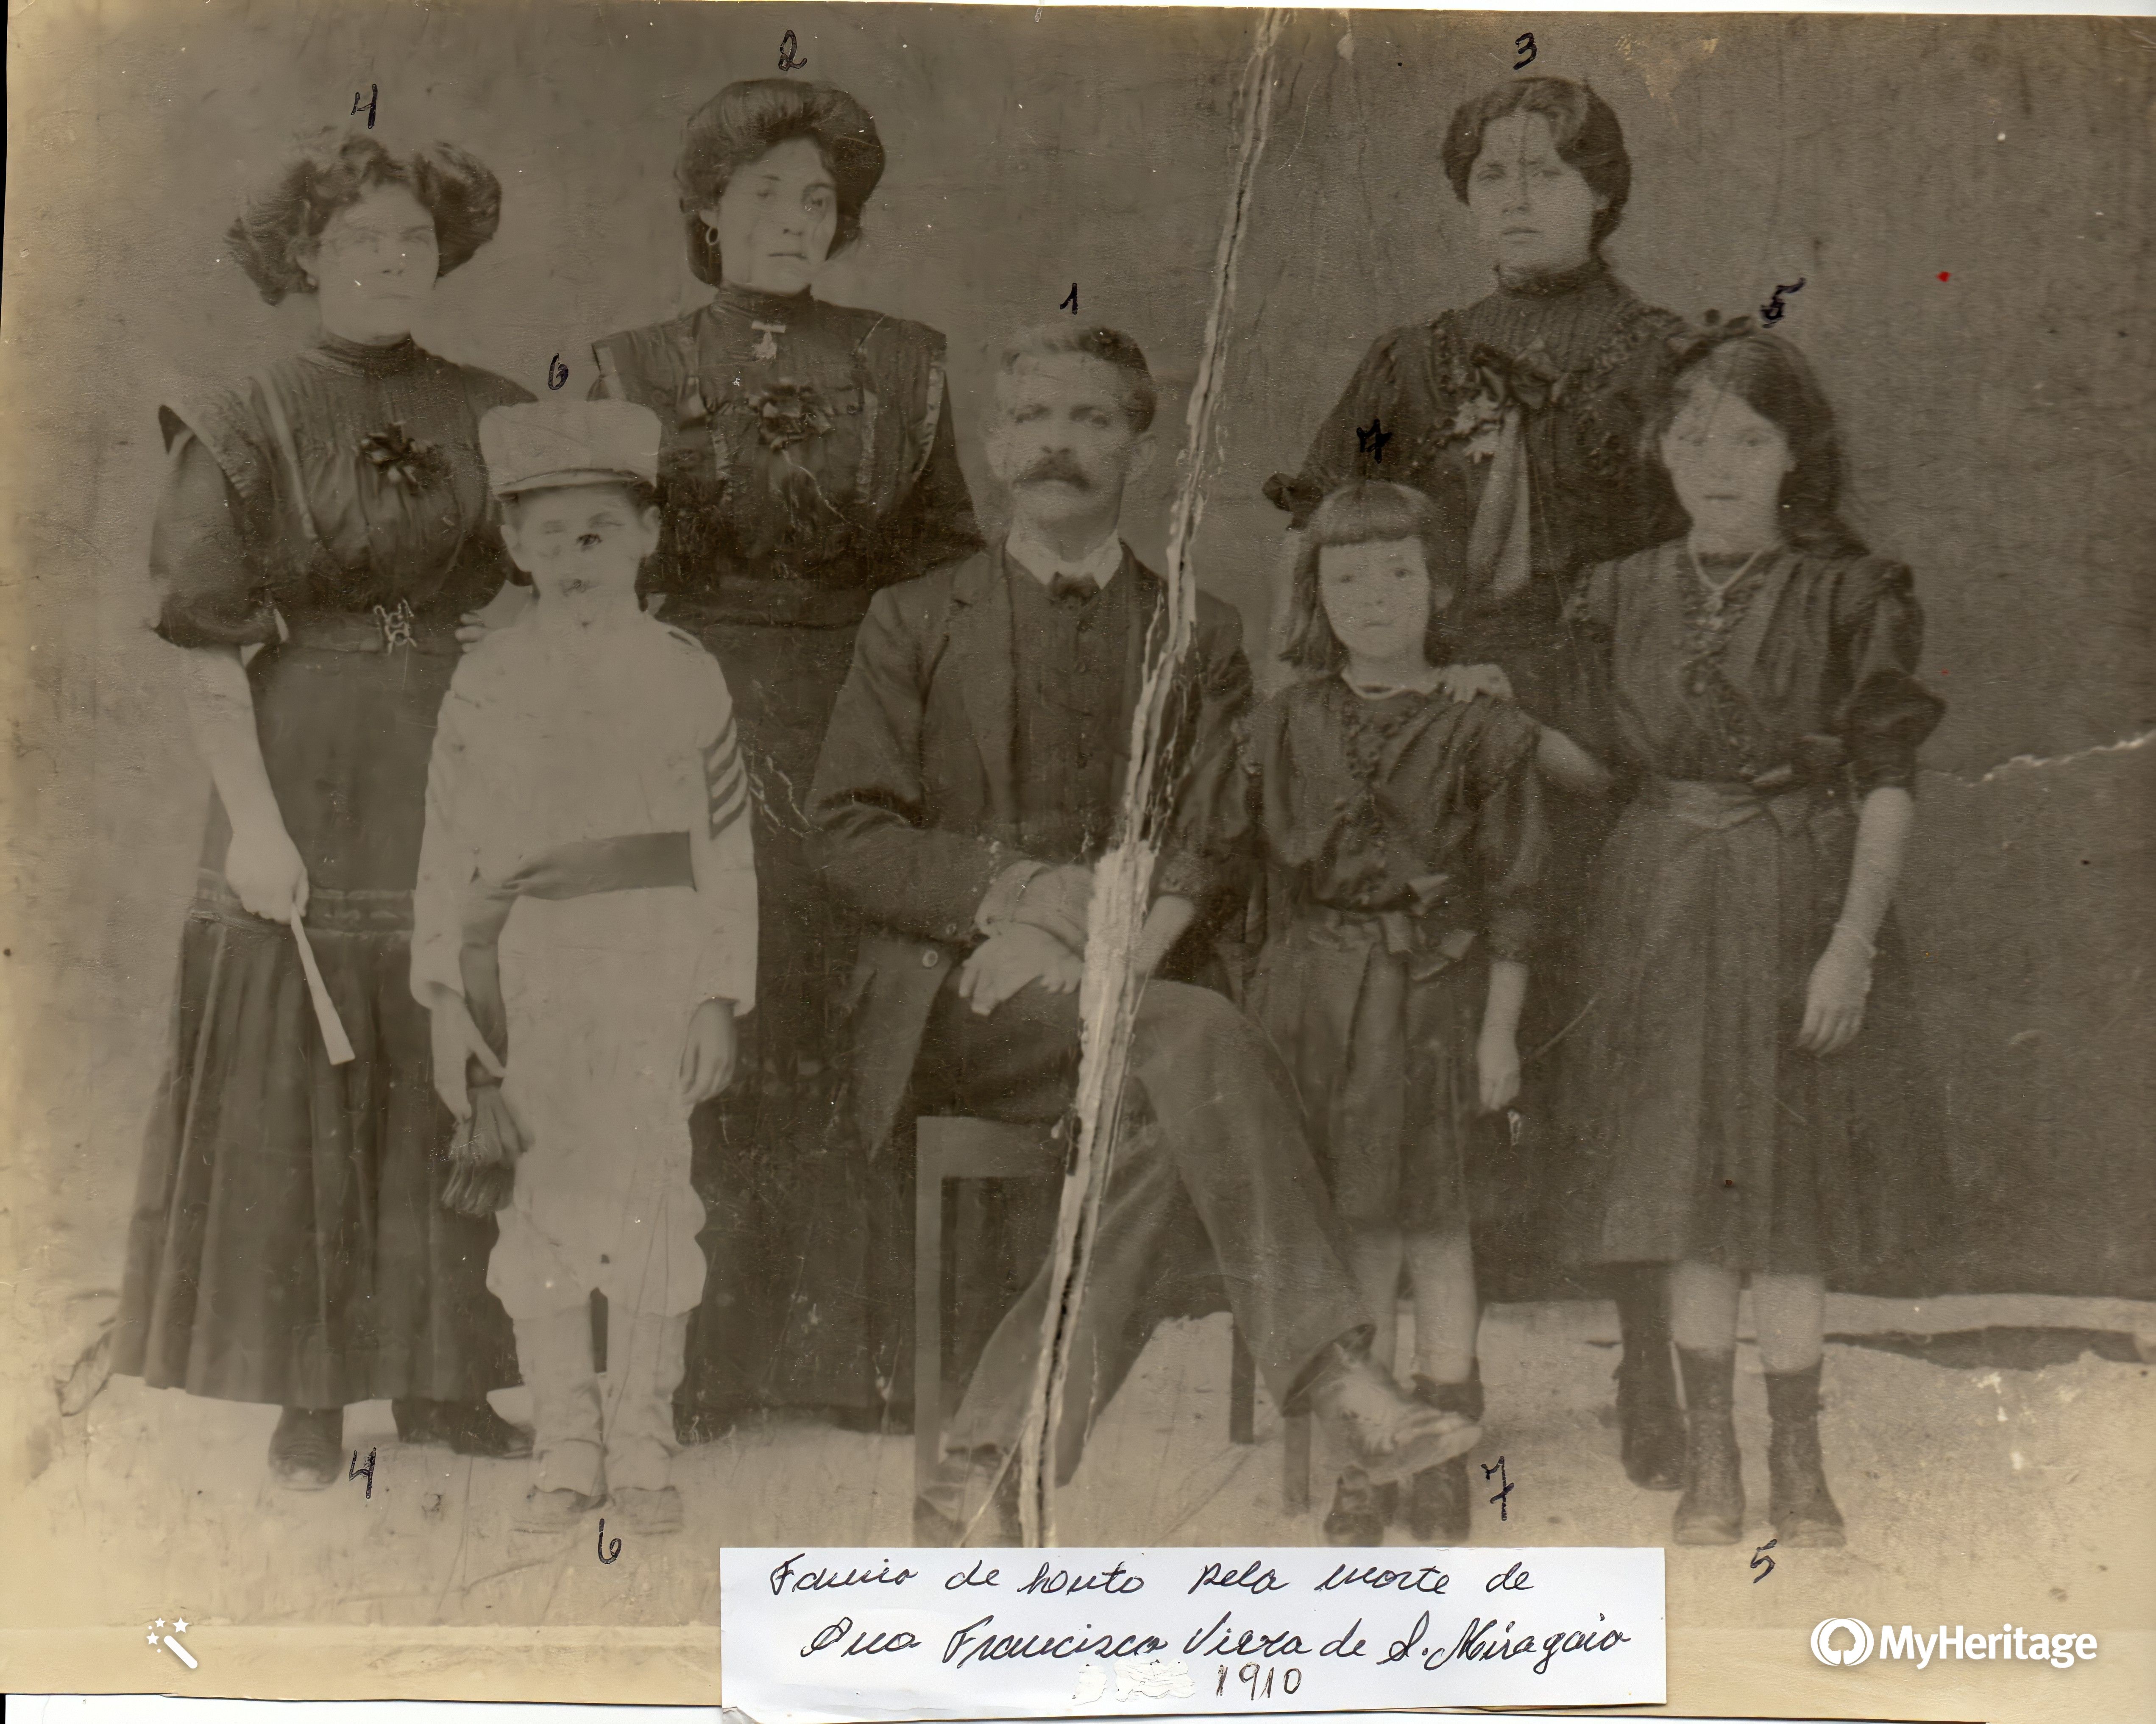 2
3
4
1
5
6
7
4
7
6
5
Famiia de houto pela morte de
Ana Francisca Vieira de S. Miragaia
1910
MyHeritage